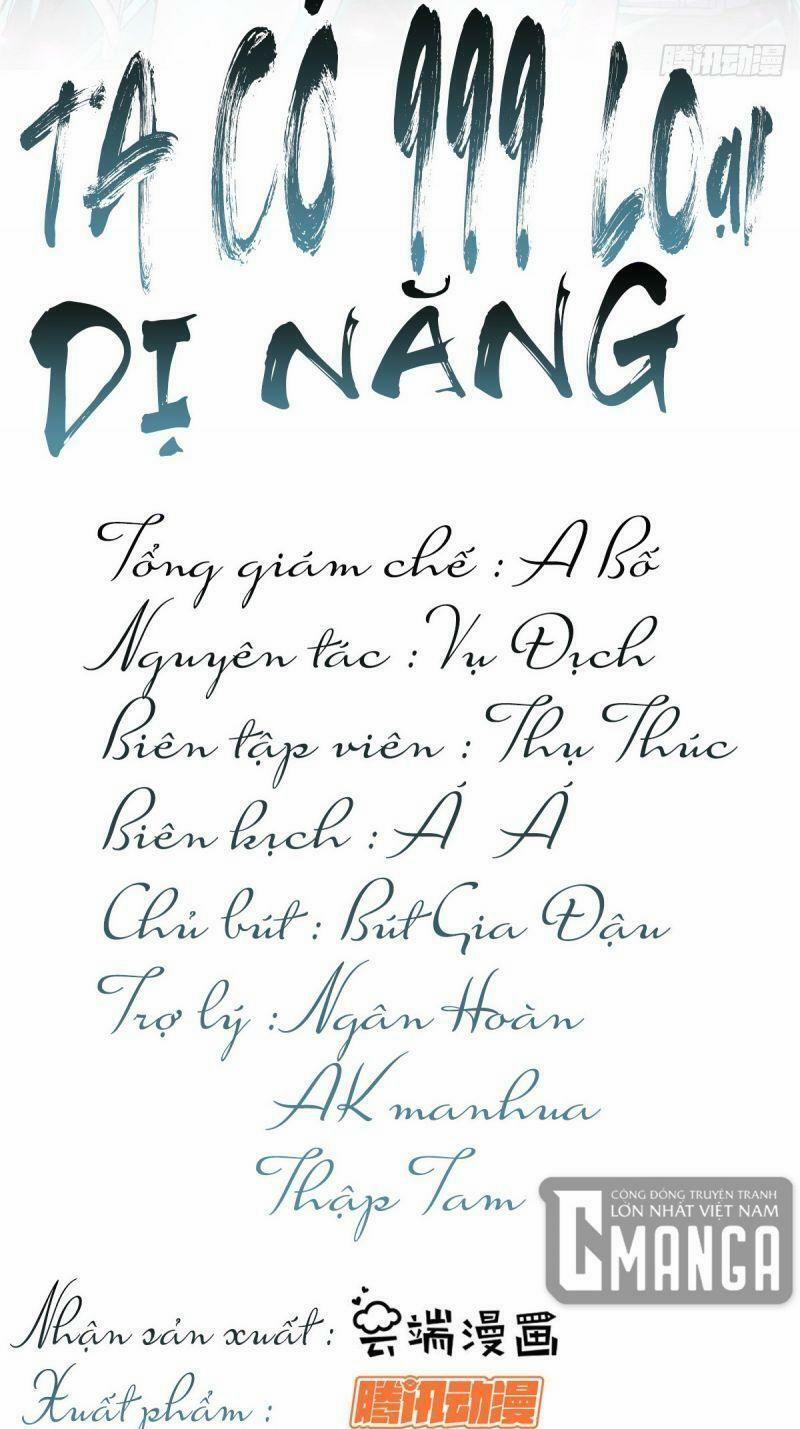 腾讯动漫
TA CÓ 999 LOẠI
DỊ NĂNG
Tổng giám chế : A Bố
Nguyên tác : Vụ Địch
Biên tập viên : Thụ Thúc
Biên kịch : Á Á
Chủ bút : Bút Gia Đậu
Trợ lý : Ngân Hoàn
AK manhua
Thập Tam
CỘNG ĐỒNG TRUYỆN TRANH
LỚN NHẤT VIỆT NAM
CMANGA
Nhận sản xuất : 云端漫画
Xuất phẩm : 腾讯动漫